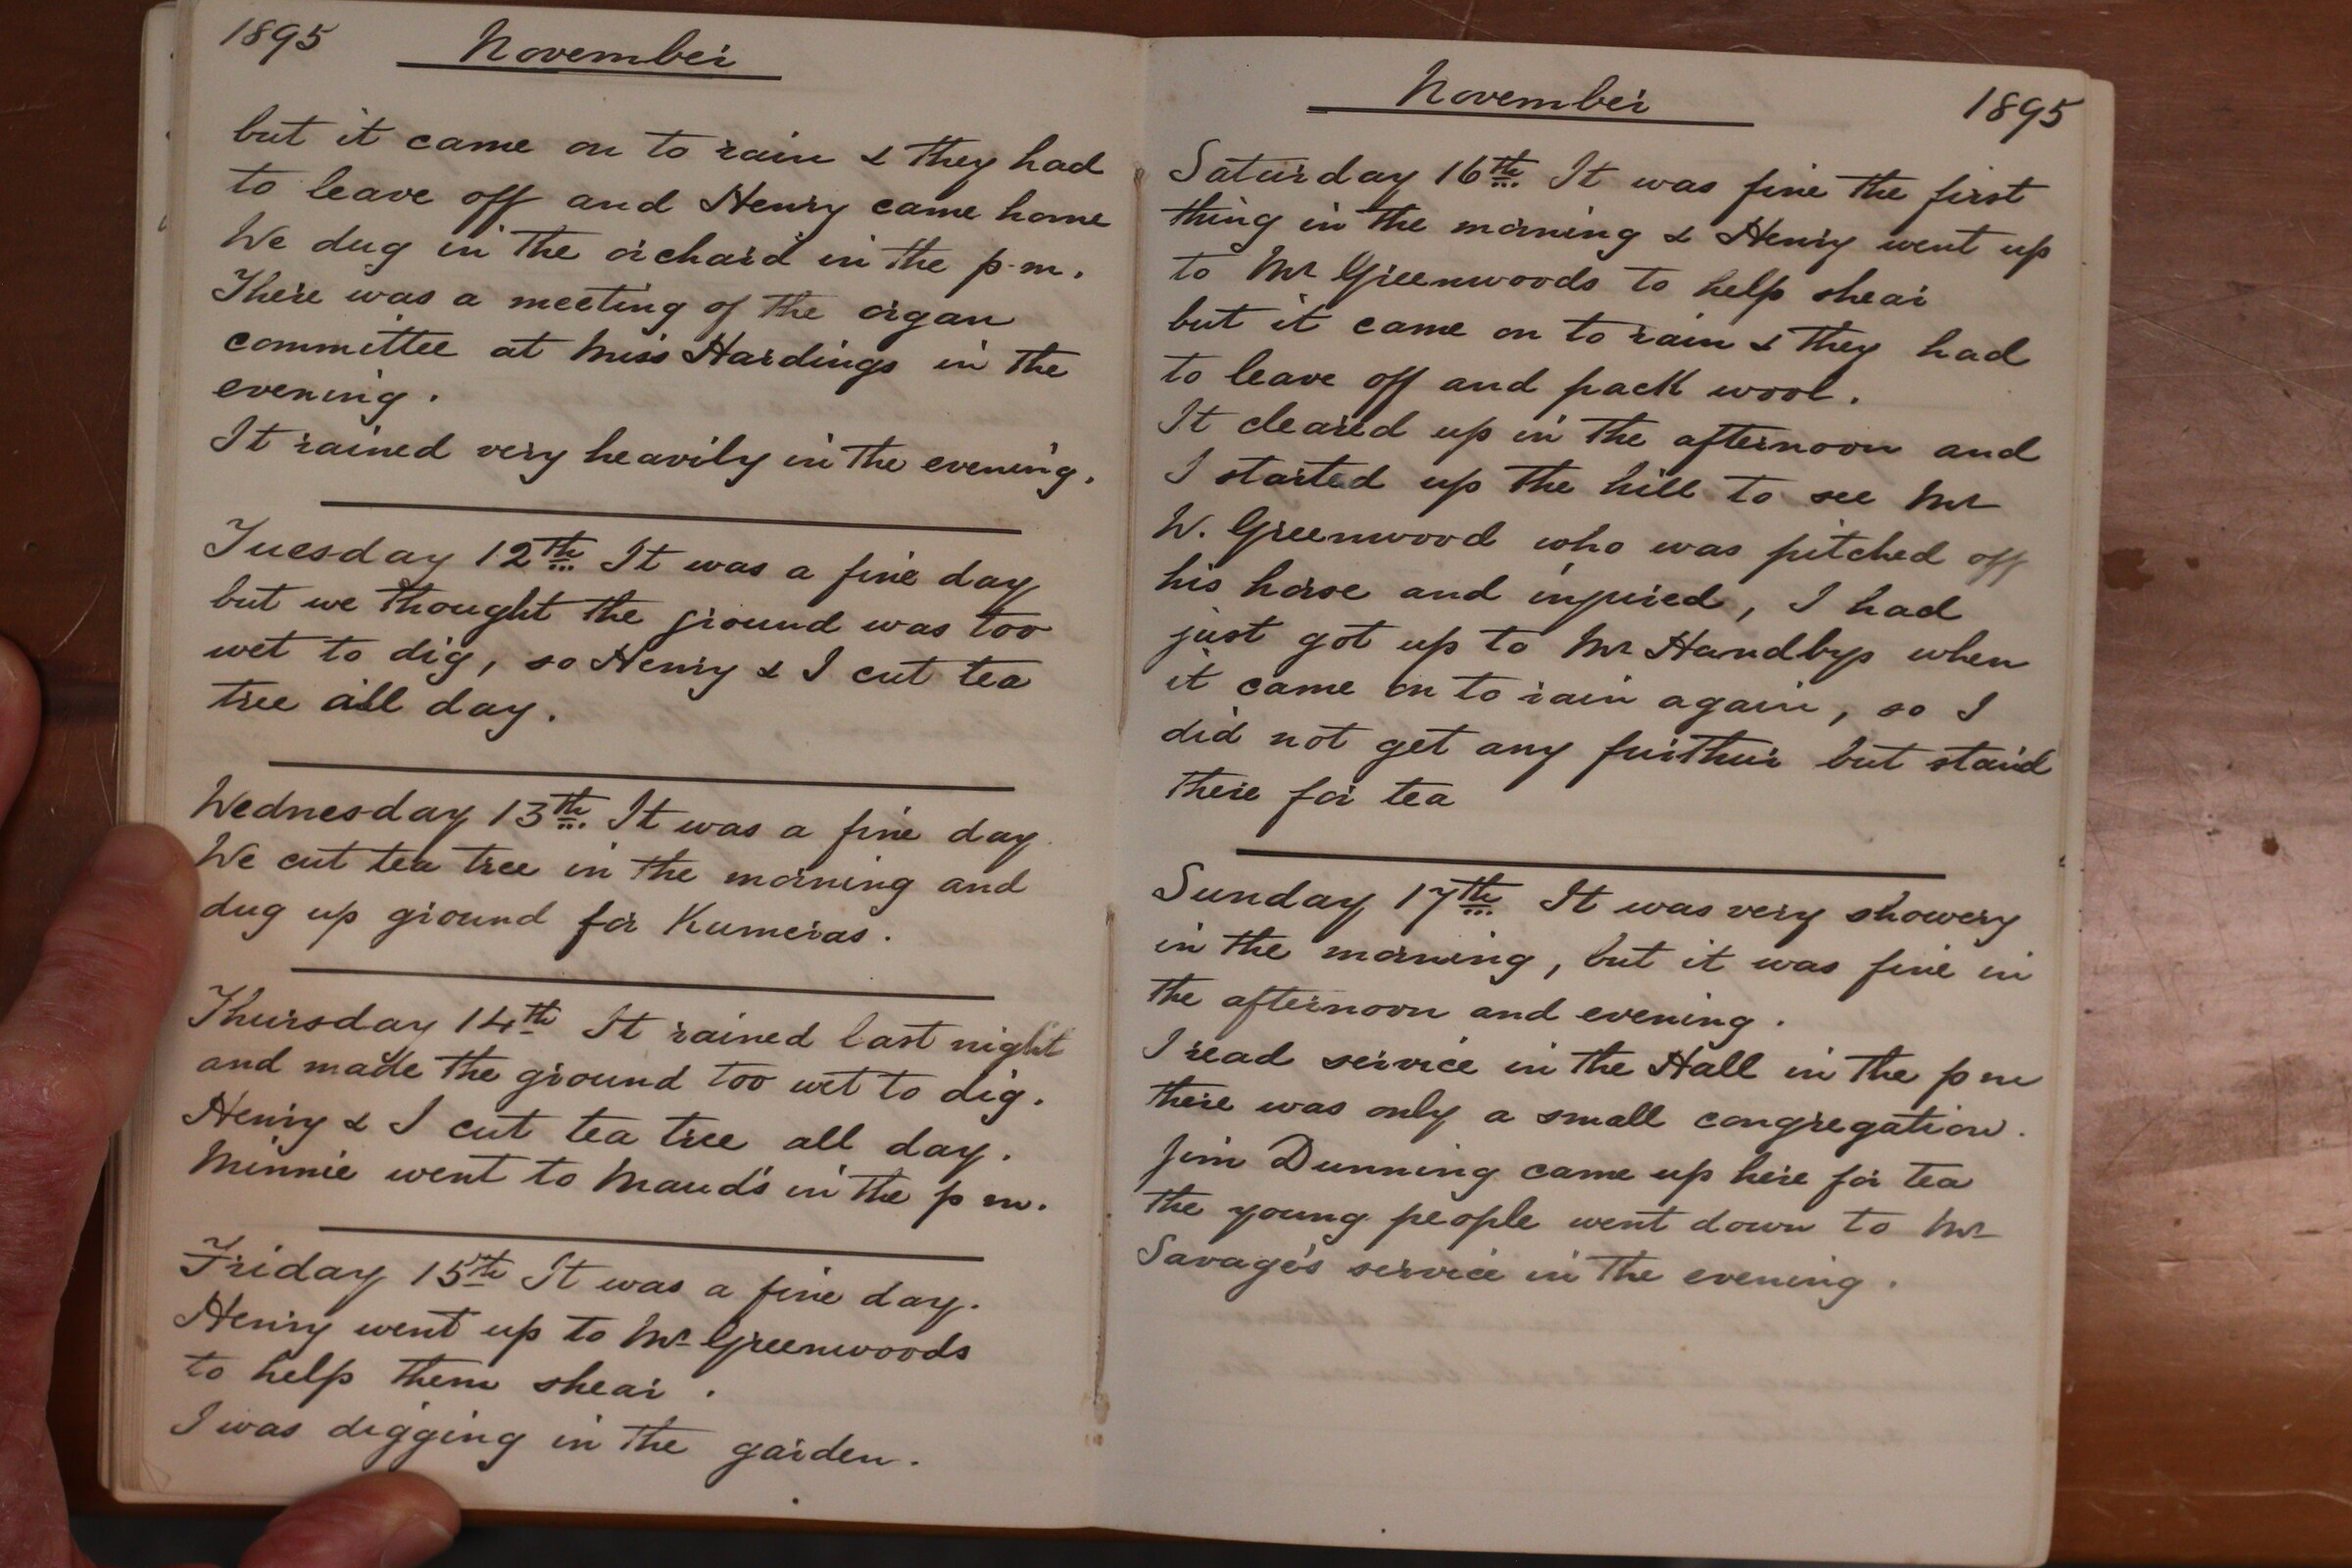 1895 November
but it came on to rain & they had
to leave off and Henry came home
We dug in the orchard in the p.m.
There was a meeting of the organ
committee at Miss Hardings in the
evening.
It rained very heavily in the evening.
Tuesday 12th It was a fine day
but we thought the ground was too
wet to dig, so Henry & I cut tea
tree all day.
Wednesday 13th. It was a fine day
We cut tea tree in the morning and
dug up ground for Kumeras.
Thursday 14th It rained last night
and made the ground too wet to dig.
Henry & I cut tea tree all day.
Minnie went to Maud's in the p m.
Friday 15th It was a fine day.
Henry went up to Mr Greenwoods
to help them shear.
I was digging in the garden.
November 1895
Saturday 16th. It was fine the first
thing in the morning & Henry went up
to Mr Greenwoods to help shear
but it came on to rain & they had
to leave off and pack wool.
It cleared up in the afternoon and
I started up the hill to see Mr
W. Greenwood who was pitched off
his horse and injured, I had
just got up to Mr Handbys when
it came on to rain again, so I
did not get any furthur but staid
there for tea
Sunday 17th It was very showery
in the morning, but it was fine in
the afternoon and evening.
I read service in the Hall in the p m
there was only a small congregation.
Jim Dunning came up here for tea
the young people went down to Mr
Savage's service in the evening.